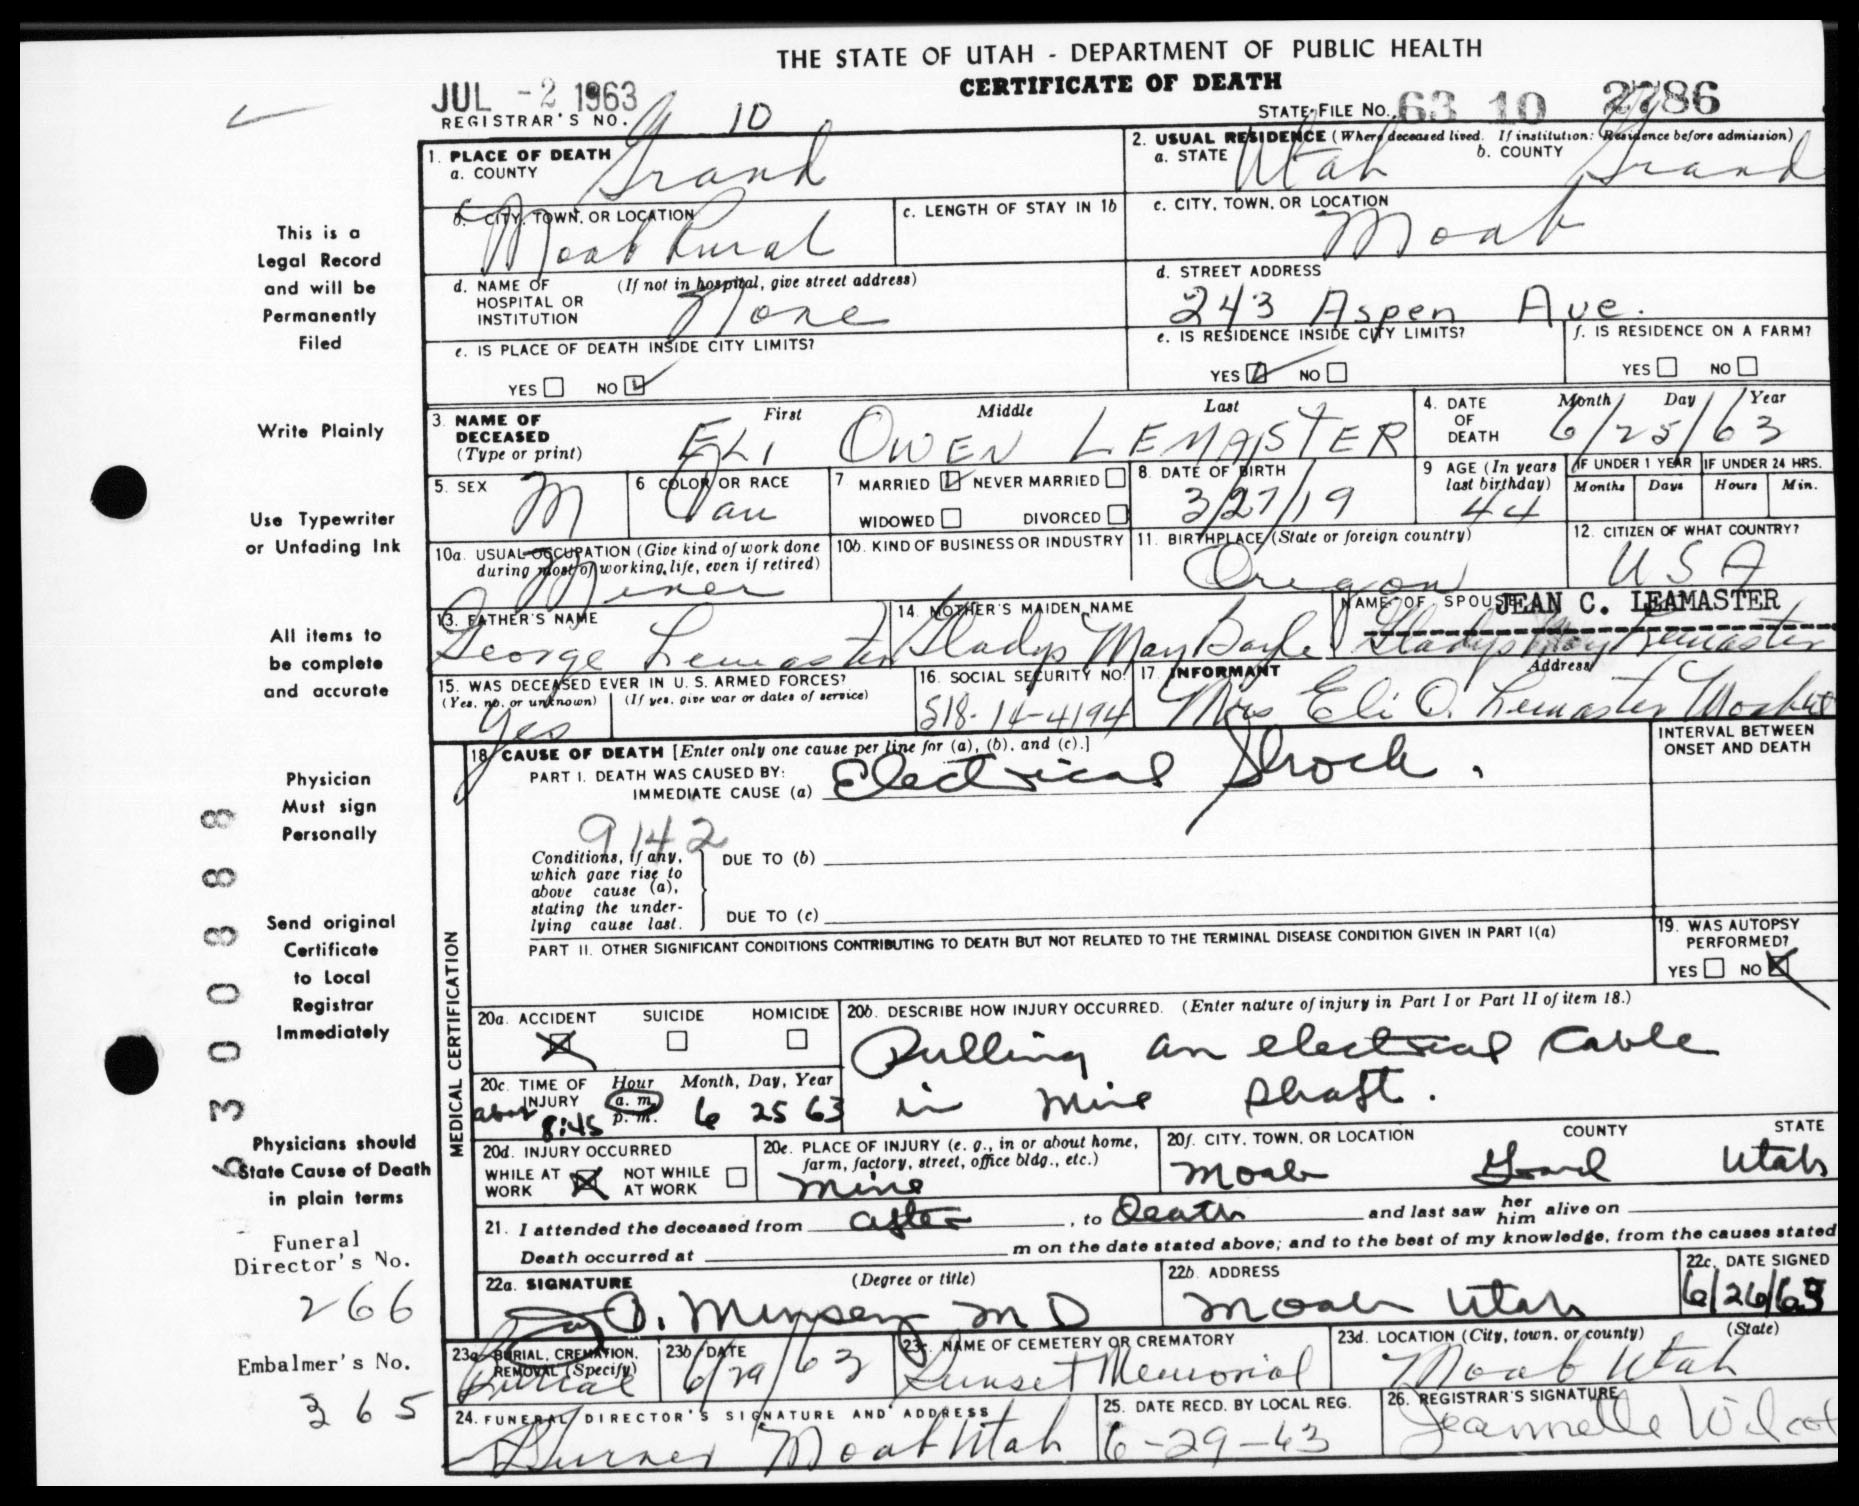 THE STATE OF UTAH - DEPARTMENT OF PUBLIC HEALTH
CERTIFICATE OF DEATH
JUL -2 1963
REGISTRAR'S NO. 10
STATE FILE NO. 63 10 2786
1. PLACE OF DEATH
a. COUNTY Grand
2. USUAL RESIDENCE (Where deceased lived. If institution: Residence before admission)
a. STATE Utah b. COUNTY Grand
b. CITY, TOWN, OR LOCATION
Moab Rural
c. LENGTH OF STAY IN 1b
c. CITY, TOWN, OR LOCATION
Moab
d. NAME OF HOSPITAL OR INSTITUTION (If not in hospital, give street address)
None
d. STREET ADDRESS
243 Aspen Ave.
e. IS PLACE OF DEATH INSIDE CITY LIMITS?
YES NO
e. IS RESIDENCE INSIDE CITY LIMITS?
YES NO
f. IS RESIDENCE ON A FARM?
YES NO
3. NAME OF DECEASED (Type or print)
First Middle Last
ELI OWEN LEMASTER
4. DATE OF DEATH
Month Day Year
6/25/63
5. SEX
M
6 COLOR OR RACE
Cau
7 MARRIED NEVER MARRIED
WIDOWED DIVORCED
8. DATE OF BIRTH
3/27/19
9 AGE (In years last birthday)
44
IF UNDER 1 YEAR
Months Days
IF UNDER 24 HRS.
Hours Min.
10a. USUAL OCCUPATION (Give kind of work done during most of working life, even if retired)
Miner
10b. KIND OF BUSINESS OR INDUSTRY
11. BIRTHPLACE (State or foreign country)
Oregon
12. CITIZEN OF WHAT COUNTRY?
USA
13. FATHER'S NAME
George Lemaster
14. MOTHER'S MAIDEN NAME
Gladys May Boyle
NAME OF SPOUSE JEAN C. LEAMASTER
Gladys May Lemaster
15. WAS DECEASED EVER IN U. S. ARMED FORCES?
(Yes, no, or unknown) (If yes, give war or dates of service)
Yes
16. SOCIAL SECURITY NO.
518-14-4194
17. INFORMANT Address
Mrs Eli O. Lemaster Moab Ut
18. CAUSE OF DEATH [Enter only one cause per line for (a), (b), and (c).]
PART I. DEATH WAS CAUSED BY:
IMMEDIATE CAUSE (a) Electrical Shock.
INTERVAL BETWEEN ONSET AND DEATH
9142
Conditions, if any, which gave rise to above cause (a), stating the underlying cause last.
DUE TO (b)
DUE TO (c)
PART II. OTHER SIGNIFICANT CONDITIONS CONTRIBUTING TO DEATH BUT NOT RELATED TO THE TERMINAL DISEASE CONDITION GIVEN IN PART I(a)
19. WAS AUTOPSY PERFORMED?
YES NO
MEDICAL CERTIFICATION
20a. ACCIDENT SUICIDE HOMICIDE
20b. DESCRIBE HOW INJURY OCCURRED. (Enter nature of injury in Part I or Part II of item 18.)
Pulling an electrical cable
in mine shaft.
20c. TIME OF INJURY Hour Month, Day, Year
a. m. p. m.
about 8:45 6 25 63
20d. INJURY OCCURRED
WHILE AT WORK NOT WHILE AT WORK
20e. PLACE OF INJURY (e. g., in or about home, farm, factory, street, office bldg., etc.)
mine
20f. CITY, TOWN, OR LOCATION COUNTY STATE
Moab Grand Utah
21. I attended the deceased from after, to Death and last saw her him alive on
Death occurred at m on the date stated above; and to the best of my knowledge, from the causes stated
22a. SIGNATURE (Degree or title)
MD
22b. ADDRESS
Moab Utah
22c. DATE SIGNED
6/26/63
23a. BURIAL, CREMATION, REMOVAL (Specify)
Burial
23b. DATE
6/29/63
23c. NAME OF CEMETERY OR CREMATORY
Sunset Memorial
23d. LOCATION (City, town, or county) (State)
Moab Utah
24. FUNERAL DIRECTOR'S SIGNATURE AND ADDRESS
Moab Utah
25. DATE RECD. BY LOCAL REG.
6-29-63
26. REGISTRAR'S SIGNATURE
Jeannelle Wilcox
This is a
Legal Record
and will be
Permanently
Filed
Write Plainly
Use Typewriter
or Unfading Ink
All items to
be complete
and accurate
Physician
Must sign
Personally
Send original
Certificate
to Local
Registrar
Immediately
Physicians should
State Cause of Death
in plain terms
Funeral
Director's No.
266
Embalmer's No.
365
6300388